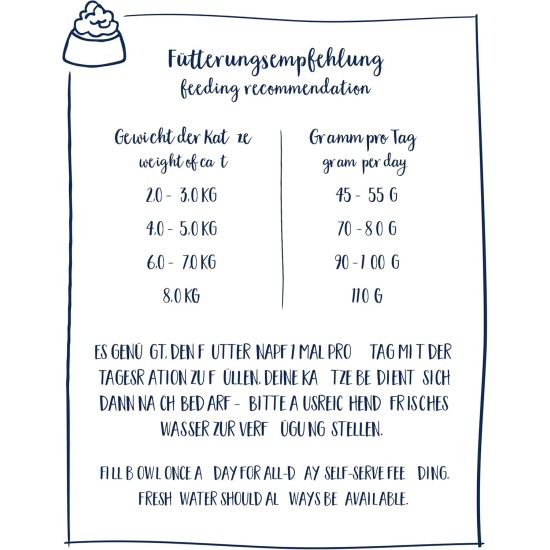 Fütterungsempfehlung
feeding recommendation
Gewicht der Kat ze
weight of ca t
Gramm pro Tag
gram per day
2.0 - 3.0 KG
45 - 55 G
4.0 - 5.0 KG
70 - 8 0 G
6.0 - 7.0 KG
90 - 1 00 G
8.0 KG
110 G
ES GENÜ GT, DEN F UTTER NAPF 1 MAL PRO TAG MI T DER
TAGESR ATION ZU F ÜLLEN. DEINE KA TZE BE DIENT SICH
DANN NA CH BED ARF - BITTE A USREIC HEND FRISCHES
WASSER ZUR VERF ÜGUNG STELLEN.
FILL B OWL ONCE A DAY FOR ALL-D AY SELF-SERVE FEE DING.
FRESH WATER SHOULD AL WAYS BE AVAILABLE.